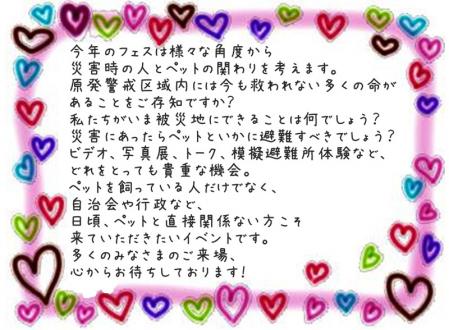 今年のフェスは様々な角度から
災害時の人とペットの関わりを考えます。
原発警戒区域内には今も救われない多くの命が
あることをご存知ですか？
私たちがいま被災地にできることは何でしょう？
災害にあったらペットといかに避難すべきでしょう？
ビデオ、写真展、トーク、模擬避難所体験など、
どれをとっても貴重な機会。
ペットを飼っている人だけでなく、
自治会や行政など、
日頃、ペットと直接関係ない方こそ
来ていただきたいイベントです。
多くのみなさまのご来場、
心からお待ちしております！